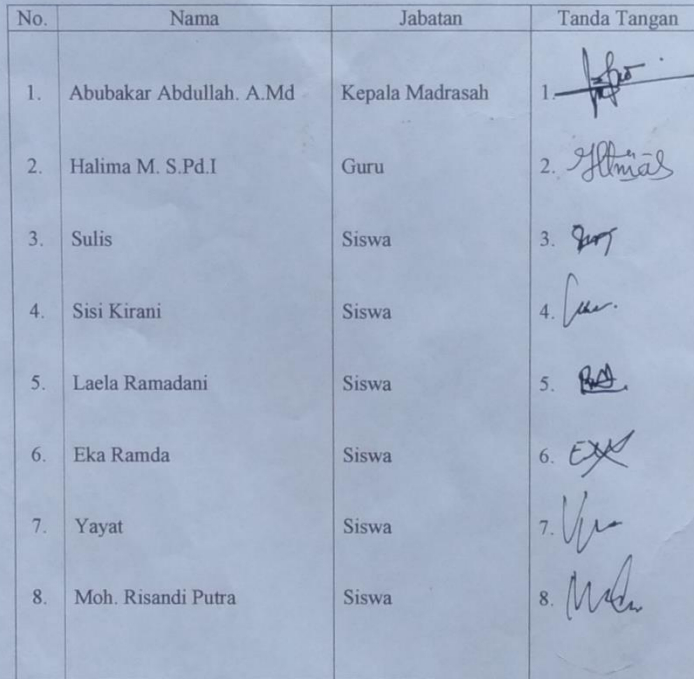 No. Nama Jabatan Tanda Tangan
1. Abubakar Abdullah. A.Md Kepala Madrasah 1.
2. Halima M. S.Pd.I Guru 2.
3. Sulis Siswa 3.
4. Sisi Kirani Siswa 4.
5. Laela Ramadani Siswa 5.
6. Eka Ramda Siswa 6.
7. Yayat Siswa 7.
8. Moh. Risandi Putra Siswa 8.